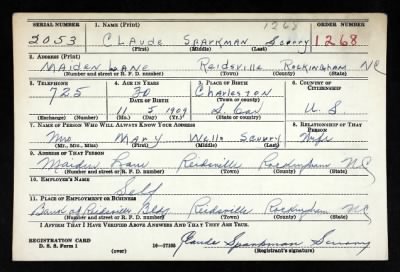 1268
SERIAL NUMBER 1. NAME (Print) ORDER NUMBER
2053 CLAUDE SPARKMAN Scurry 1268
(First) (Middle) (Last)
2. ADDRESS (Print)
MAIDEN LANE Reidsville ROCKINGHAM NC
(Number and street or R. F. D. number) (Town) (County) (State)
3. TELEPHONE 4. AGE IN YEARS 5. PLACE OF BIRTH 6. COUNTRY OF CITIZENSHIP
725 30 Charleston
DATE OF BIRTH (Town or county)
11 5 1909 S. Car U. S
(Exchange) (Number) (Mo.) (Day) (Yr.) (State or country)
7. NAME OF PERSON WHO WILL ALWAYS KNOW YOUR ADDRESS 8. RELATIONSHIP OF THAT PERSON
Mrs Mary Wells Scurry Wife
(Mr., Mrs., Miss) (First) (Middle) (Last)
9. ADDRESS OF THAT PERSON
Maiden Lane Reidsville Rockingham NC
(Number and street or R. F. D. number) (Town) (County) (State)
10. EMPLOYER'S NAME
Self
11. PLACE OF EMPLOYMENT OR BUSINESS
Bank of Reidsville Bldg Reidsville Rockingham NC
(Number and street or R. F. D. number) (Town) (County) (State)
I AFFIRM THAT I HAVE VERIFIED ABOVE ANSWERS AND THAT THEY ARE TRUE.
REGISTRATION CARD
D. S. S. Form 1 (over) 16—17105 Claude Sparkman Scurry
(Registrant's signature)